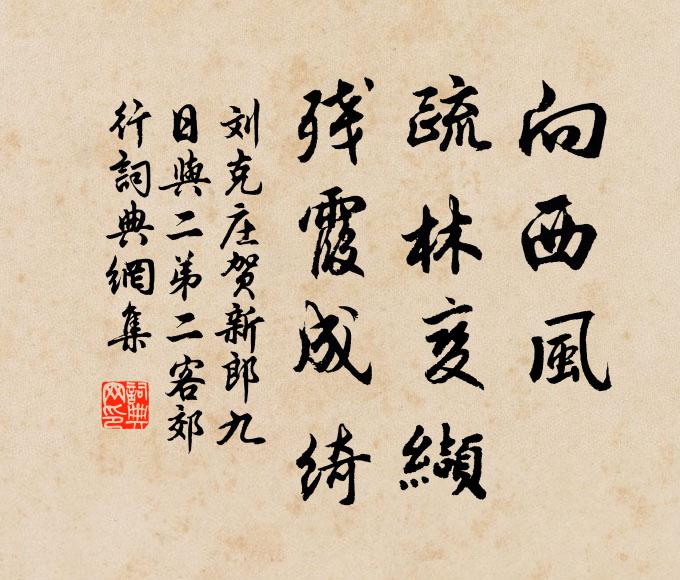 向西風
疏林变纈
残霞成绮
刘克庄贺新郎九
日與二弟二客郊
行詞典網集
詞典
网印